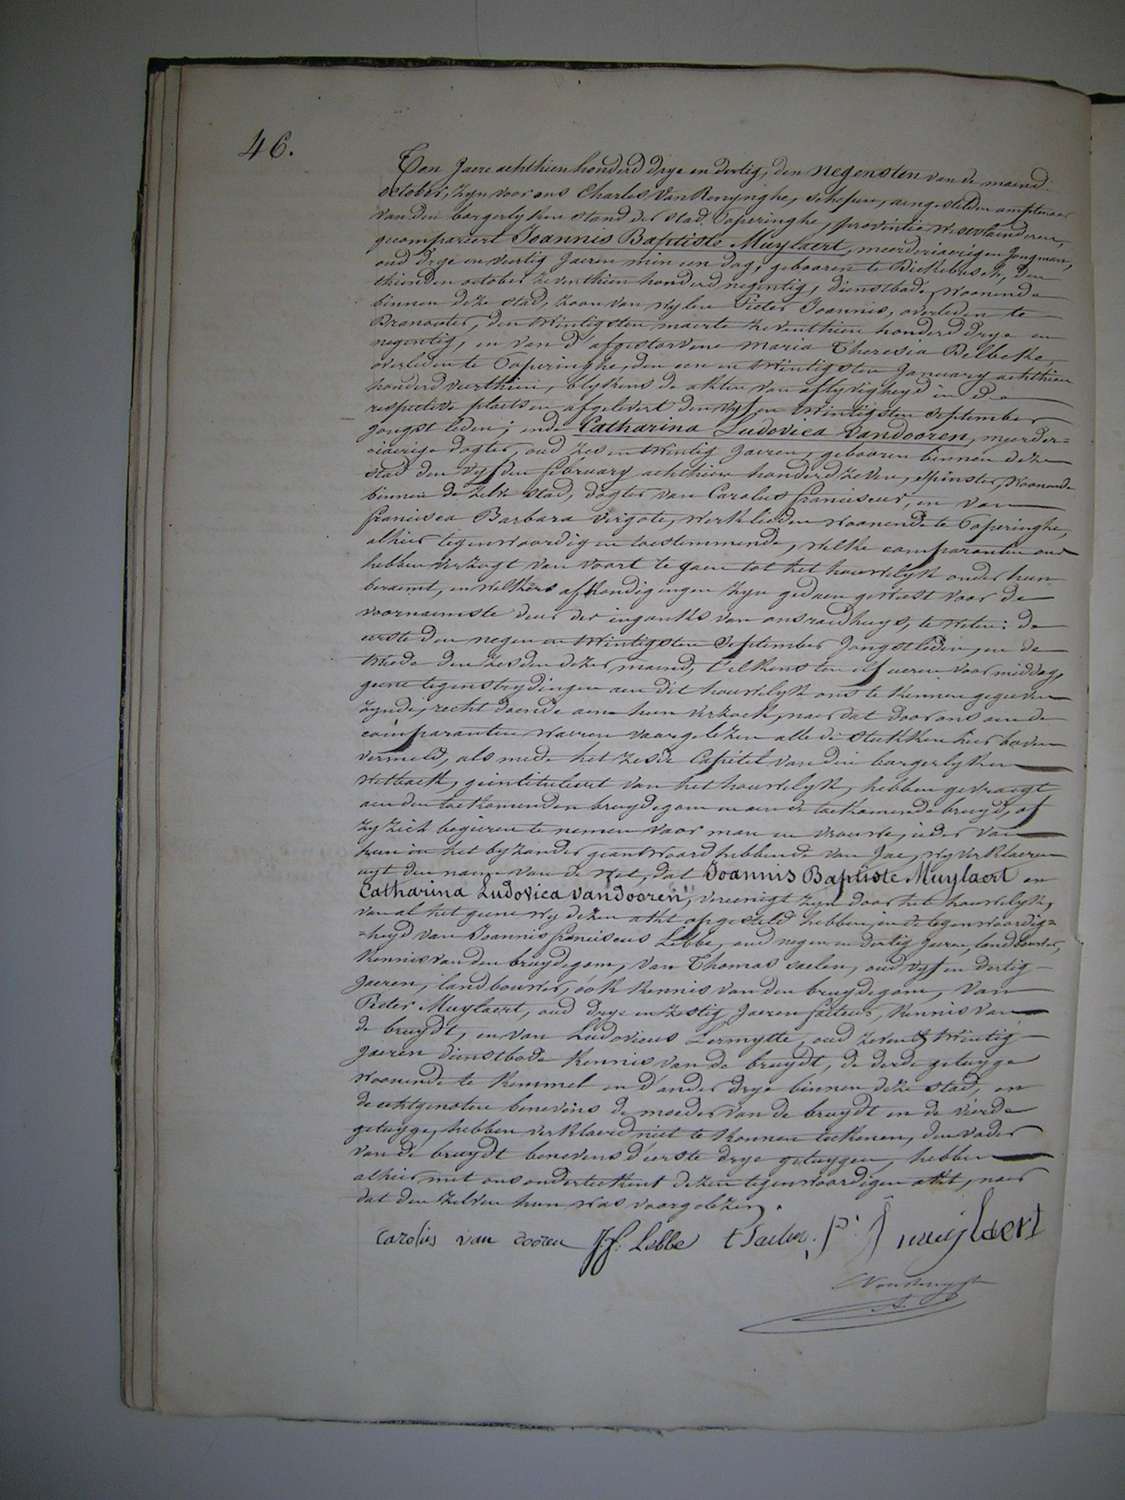 46.
Ten Jaere achthien honderd drye en dertig, den negensten van de maend
october, zyn voor ons Charles Van Renynghe, schepen, aengestelden amptenaer
van den borgerlyken stand der stad Poperinghe, provintie Westvlaenderen,
gecompareert Joannis Baptiste Muylaert, meerderjaerigen Jongman,
oud drye en veertig Jaeren min een dag, gebooren te Dickebusch, den
thienden october zeventhien honderd negentig, dienstbode, woonende
binnen deze stad, zoon van wylen Pieter Joannis, overleden te
Dranouter, den twintigsten maerte zeventhien honderd drye en
negentig, en van d'afgestorvene Maria Theresia Delbeke,
overleden te Poperinghe, den een en twintigsten January achthien
honderd veerthien, blykens de akten van aflyvigheyd in de
respective plaetsen afgelevert den vyf en twintigsten September
jongst leden; ende Catharina Ludovica Vandooren, meerder=
jaerige dogter, oud zes en twintig Jaeren, gebooren binnen deze
stad den vyfden february achthien honderd zeven, spinster, woonende
binnen de zelve stad, dogter van Carolus franciscus, en van
francisca Barbara Vergote, werklieden woonende te Poperinghe,
alhier tegenwoordig en toestemmende, welke comparanten ons
hebben verzogt van voort te gaen tot het houwelyk onder hun
beraemt, en welkers afkondigingen zyn gedaen geweest voor de
voornaemste deur der ingank van ons raedhuys, te weten: de
eerste den negen en twintigsten September Jongstleden, en de
tweede den zesden dezer maend, telkens ten elf ueren voormiddag,
geene tegenstrydingen aen dit houwelyk ons te kennen gegeven
zynde, recht doende aen hun verzoek, naer dat door ons aen de
comparanten waeren voorgelezen alle de stukken hier boven
vermeld, als mede het zesde Capittel van den borgerlyken
wetboek, geintituleert van het houwelyk, hebben gevraegt
aen den toekomenden bruydegom en aen de toekomende bruyd, of
zy zich begeeren te nemen voor man en vrouwe, ieder van
hun in het byzonder geantwoord hebbende van Jae, wy verklaeren
uyt den naem van de Wet, dat Joannis Baptiste Muylaert en
Catharina Ludovica Vandooren, vereenigt zyn door het houwelyk,
van al het geene wy dezen akt opgesteld hebben, in de tegenwoordig=
=heyd van Joannis franciscus Lebbe, oud negen en dertig Jaeren, landbouwer,
kennis van den bruydegom, van Thomas Saelen, oud vyf en dertig
Jaeren, landbouwer, ook kennis van den bruydegom, van
Pieter Muylaert, oud drye en zestig Jaeren, facteur, kennis van
de bruydt, en van Ludovicus Dermytte, oud zeven & twintig
Jaeren dienstbode kennis van de bruydt, de derde getuyge
woonende te Kemmel en d'ander drye binnen deze stad, en
de echtgenoten benevens de moeder van de bruydt en de vierde
getuyge, hebben verklaerd niet te konnen teekenen, den vader
van de bruydt benevens d'eerste drye getuygen, hebben
alhier met ons onderteekent dezen tegenwoordigen akt, naer
dat den zelven hun was voorgelezen.
Carolus van dooren JF: Lebbe t Saelen P: J muijlaert